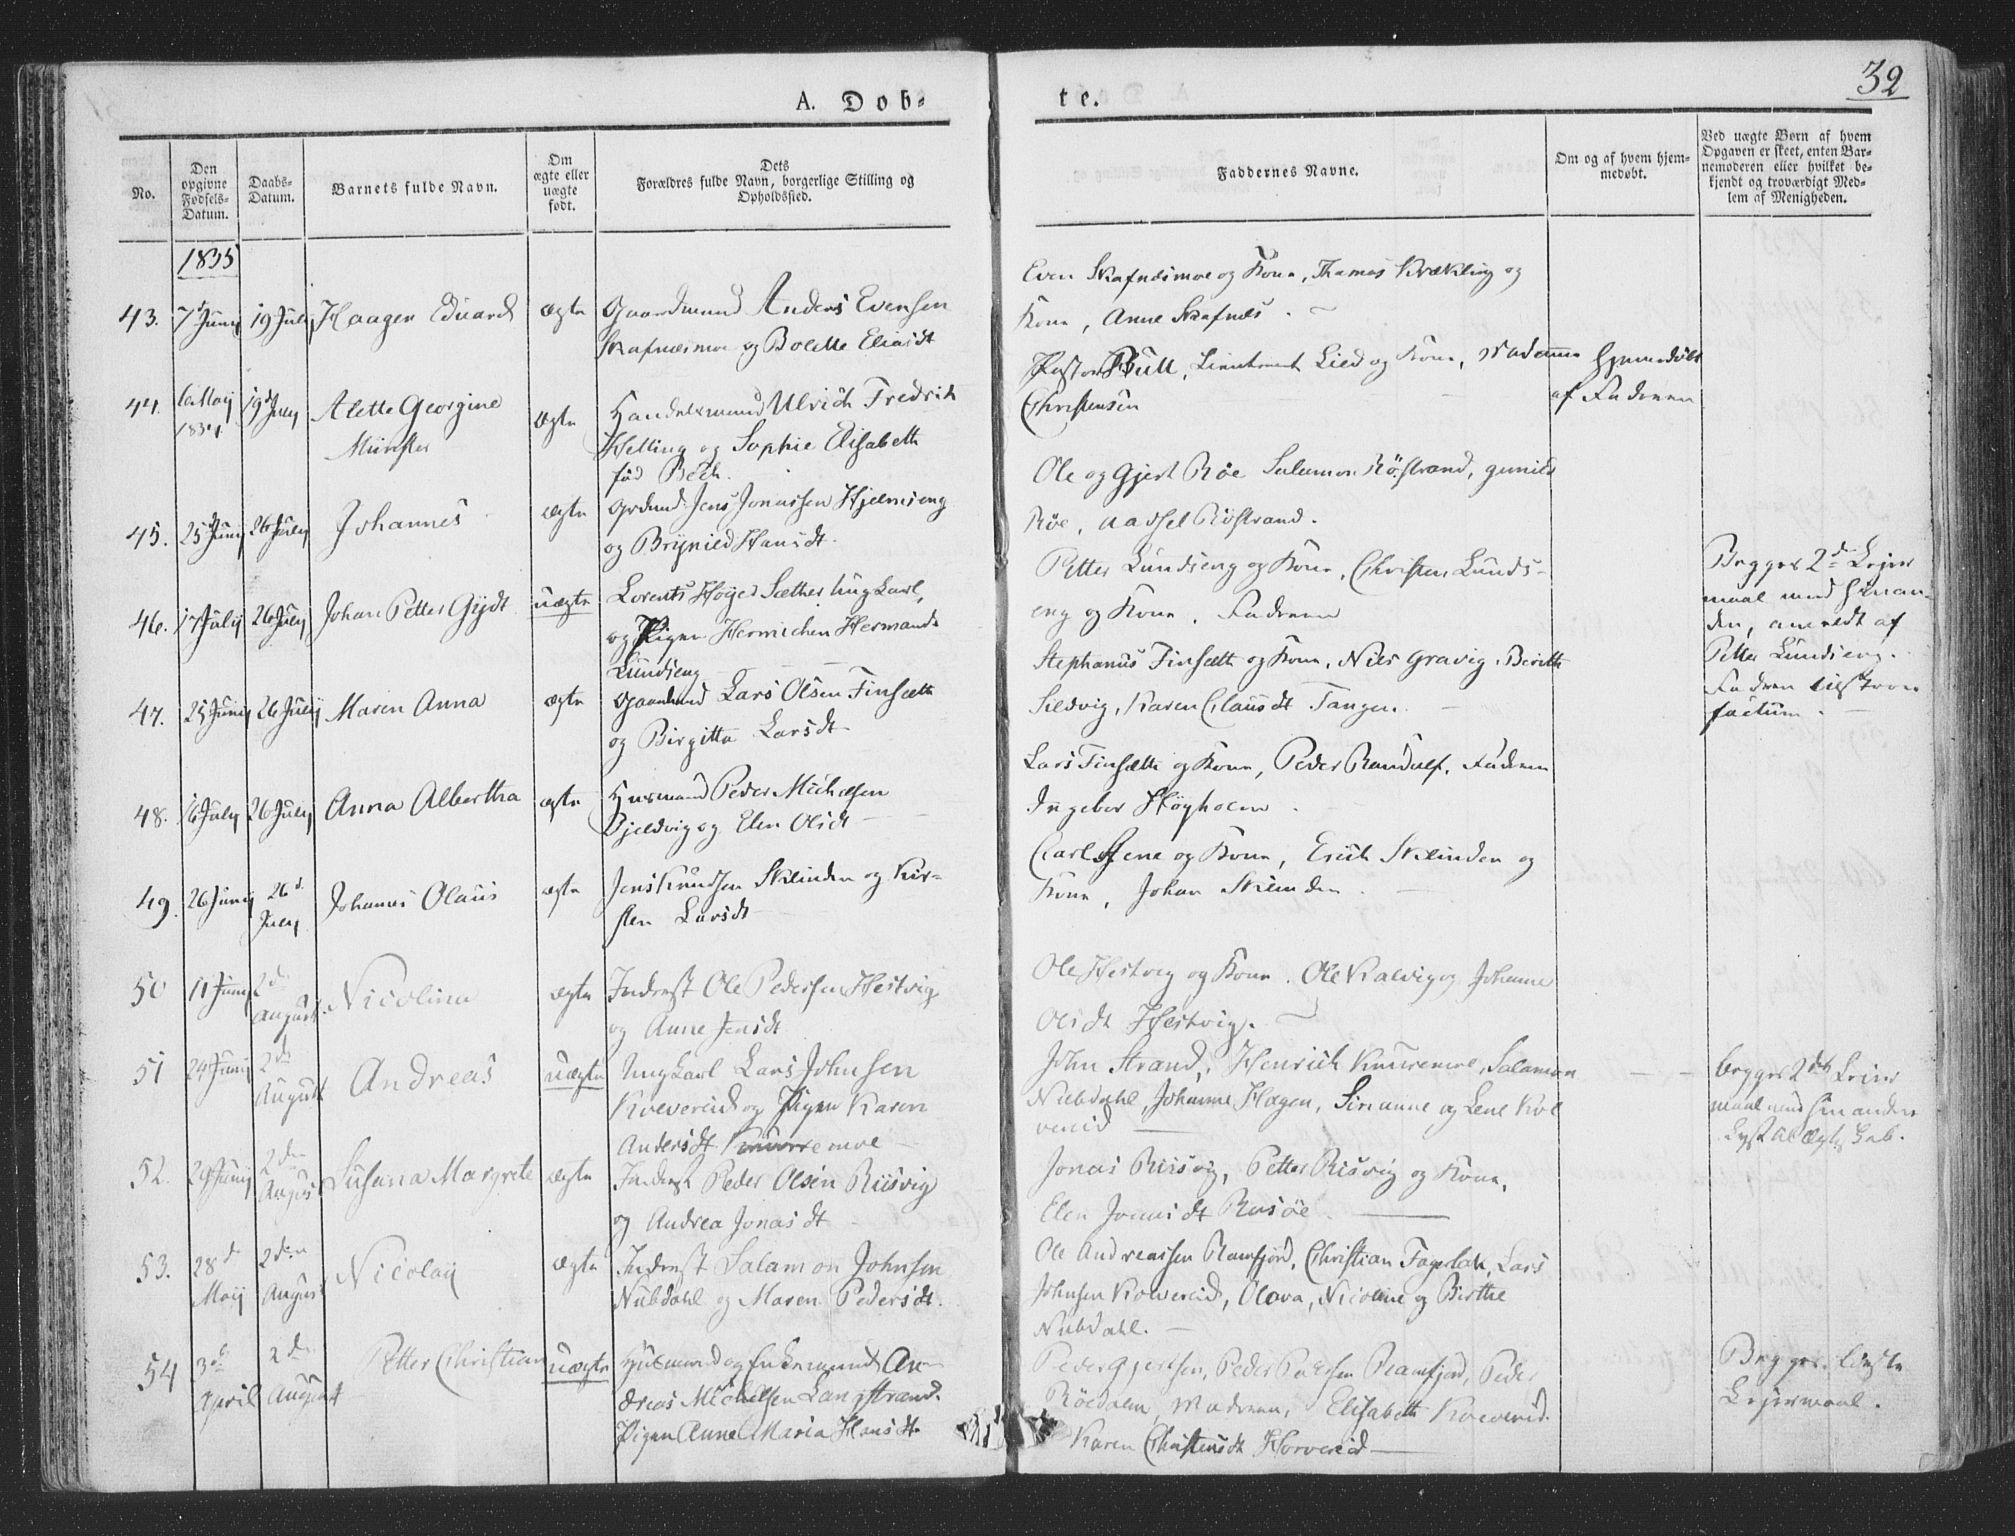 A. Døb-
te.
32
No.
Den opgivne Fødsels-Datum.
Daabs-Datum.
Barnets fulde Navn.
Om ægte eller uægte født.
Dets Forældres fulde Navn, borgerlige Stilling og Opholdssted.
Faddernes Navne.
Om og af hvem hjem-medøbt.
Ved uægte Børn af hvem Opgaven er skeet, enten Bar-nemoderen eller hvilket be-kjendt og troværdigt Med-lem af Menigheden.
1835
43. 7 Juny 19 July Haagen Eduard ægte Gaardmand Anders Evensen
Skafnesmoe og Bolette Eliasdt
Even Skafnesmoe og Kone, Thomas Krækling og
Kone, Anne Skafnes.
44. 6 Maij 1834 19 July Alette Georgine
Münster
ægte Handelsmand Ulrich Fredrik
Helling og Sophie Elisabeth
fød Bech.
Pastor Bull, Lieutenant Lied og Kone, Madamme
Christensen
Hjemmedøbt
af Faderen
45. 25 Juny 26 July Johannes ægte Grdmd Jens Jonassen Hjelmseng
og Brynild Hansdt.
Ole og Gjert Røe Salamon Röstrand, Gunild
Røe, Aassel Röstrand.
46. 17 July 26 July Johan Petter Gydt uægte Lorents Höyer Sæther Ungkarl,
og Pigen Hermichen Hermands
Lundseng
Petter Lundseng og Kone, Christen Lunds-
eng og Kone. Faderen
Begges 2d Lejer
maal med hinan-
den, anmeldt af
Petter Lundseng.
Faderen tilstaaer
factum.
47. 25 Juny 26 July Maren Anna ægte Gaardmd Lars Olsen Finsæth
og Birgitta Larsdt
Stephanus Finsæth og Kone, Nils Gravig, Berith
Sildvig, Karen Clausdt Tangen.
48. 16 July 26 July Anna Albertha ægte Husmand Peder Michelsen
Gjeldvig og Elen Olsdt
Lars Finsæth og Kone, Peder Randulf, Faderen
Ingebor Høyholm.
49. 26 Juny 26d July Johanes Olaus ægte Jens Knudsen Sklinden og Kir-
sten Larsdt
Carl Stene og Kone, Erich Sklinden og
Kone, Johan Sklinden.
50 11 Juny 2d August Nicolina ægte Inderst Ole Pedersen Hestvig
og Anne Jensdt
Ole Hestvig og Kone. Ole Kalvig og Johanne
Olsdt Hestvig.
51 24 Juny 2den August Andreas uægte Ungkarl Lars Johnsen
Kolvereid og Pigen Karen
Andersdt Knurremoe
John Strand, Henrich Knurremoe, Salamon
Nubdahl, Johanne Hagen, Sirianne og Lene Kol
vereid
begges 2det Leier
maal med hinanden
Lyst til Ægteskab.
52. 29 Juny 2den August Susana Margrete ægte Inderst Peder Olsen Riisvig
og Andrea Jonasdt
Jonas Riisvig, Petter Risvig og Kone,
Elen Jonasdt Risöe
53. 28d Maij 2den August Nicolaij ægte Inderst Salamon Johnsen
Nubdahl og Maren Pedersdt.
Ole Andreassen Ramfjord, Christian Fagerbak, Lars
Johnsen Kolvereid, Olava, Nicoline og Birthe
Nubdahl.
54 3d April 2den August Petter Christian uægte Husmand og Enkemand An-
dreas Michelsen Langstrand
Pigen Anne Maria Hansdt
Peder Gjertsen, Peder Pedersen Ramfjord, Peder
Röedalen, Moderen, Elisabeth Kolvereid.
Karen Christensdt Horvereid
Begges første
Lejermaal.